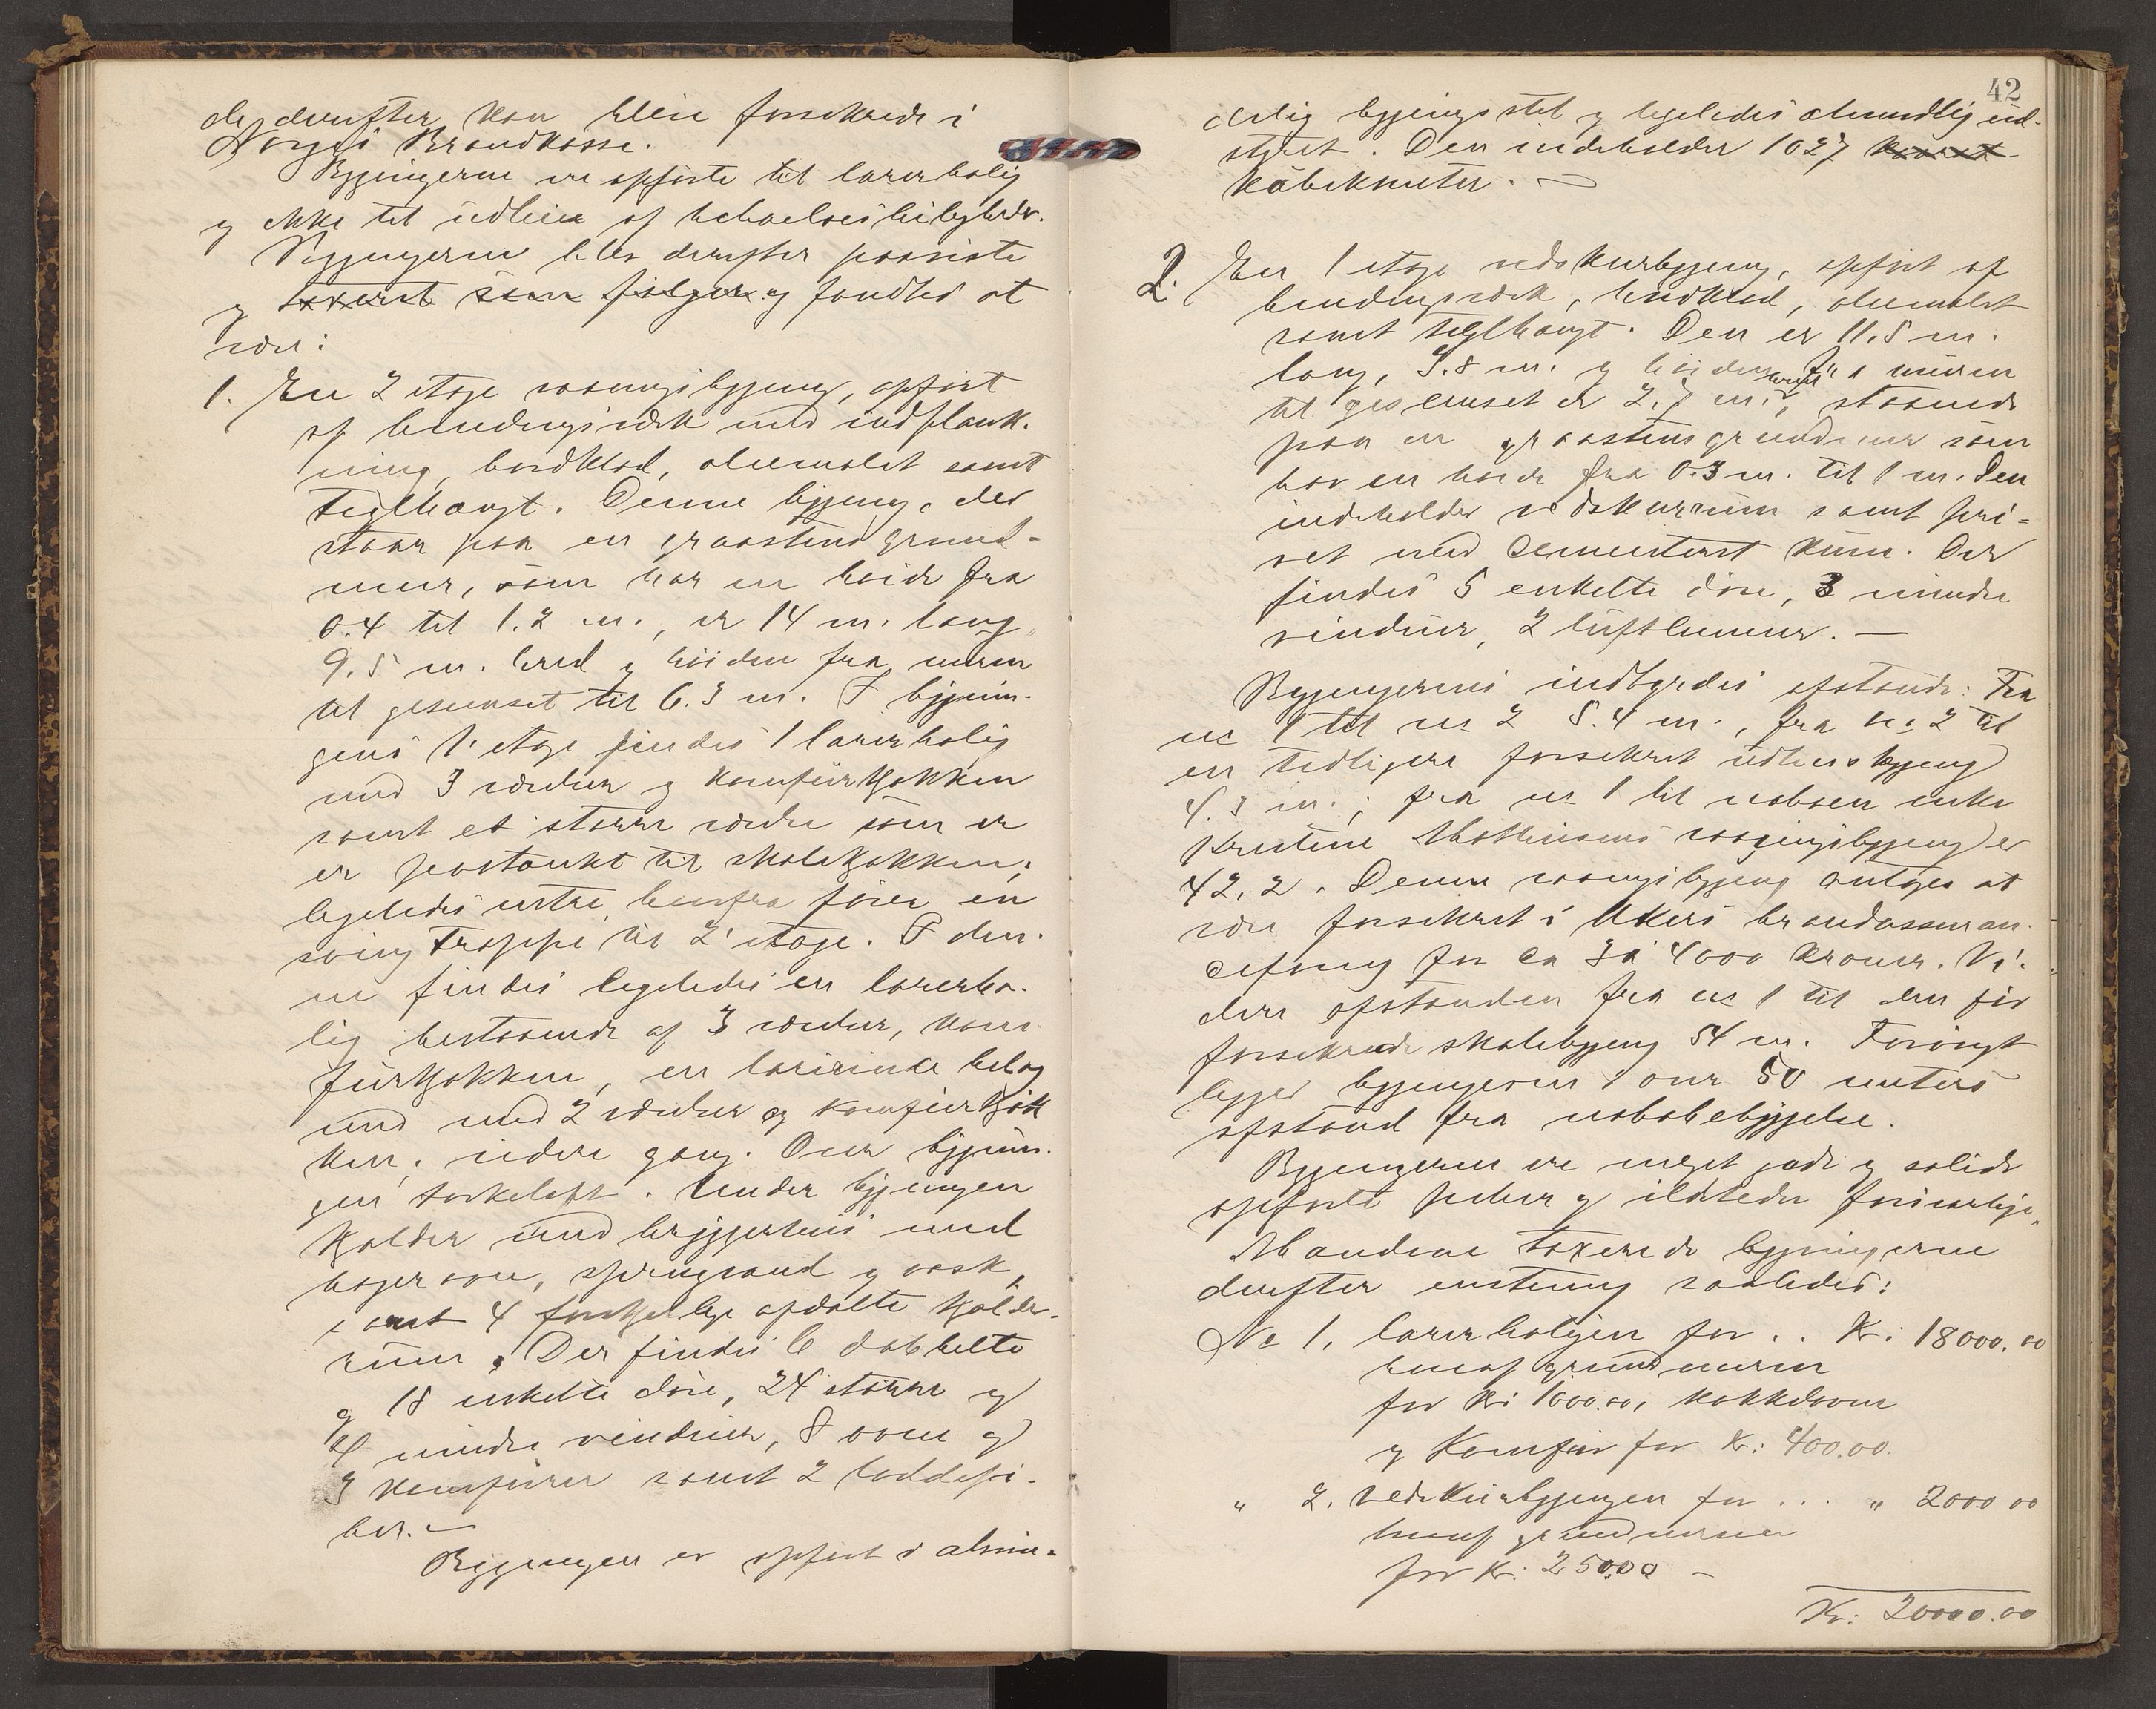 de derefter kan blive forsikrede i
Norges Brandkasse.
Bygningerne ere opførte til lærerbolig
og ikke til udleie af beboelsesleiligheder.
Bygningerne blev derefter paaviste
og taxeret som følger og fandtes at
være:
1. En 2 etage vaaningsbygning, opført
af bindingsværk med indplank-
ning, bordklæd, oliemalet samt
teglhængt. Denne bygning, der
staar paa en graastens grund-
mur, som har en høide fra
0.4 til 1.2 m., er 14 m. lang
9.5 m. bred og høiden fra muren
til gesimset til 6.3 m. I bygnin-
gens 1' etage findes 1 lærerbolig
med 3 værelser og komfurkjøkken
samt et større værelse som er
er paatænkt til skolekjøkken;
ligeledes herfra fører en
sving trappe til 2' etage. I den-
ne findes ligeledes en lærerbo-
lig bestaaende af 3 værelser, kom
furkjøkken, en lærerinde
med 2 værelser og komfurkjøk
ken, videre gang. Over bygnin-
gen tørkeloft. Under bygningen
kjælder med bryggerhus med
bagerovn, springvand og vask,
samt 4 forskjellige afdelte kjælder-
rum. Der findes 6 dobbelte
og 18 enkelte døre, 24 større og
4 mindre vinduer, 8 ovne og
3 komfurer samt 2 loddepi-
ber. —
Bygningen er opført i almin-
42
delig bygningsstil og ligeledes almindelig ud-
styret. Den indeholder 1027
kubikmeter. —
2. En 1 etage vedskurbygning, opført af
bindingsværk, bordklæd, oliemalet
samt teglhængt. Den er 11.5 m.
lang, 3.8 m. bred og høiden fra muren
til gesimset er 2.7 m., staaende
paa en graastens grundmur som
har en høide fra 0.3 m. til 1 m. Den
indeholder vedskurrum samt pri-
vet med cementeret kum. Der
findes 5 enkelte døre, 3 mindre
vinduer, 2 luftlemmer. —
Bygningernes indbyrdes afstande: Fra
no 1 til no 2 8.4 m., fra no 2 til
en tidligere forsikret udhusbygning
4.3 m.; fra no 1 til naboen enke
Kristine Mathisens vaaningsbygning er
42,2. Denne vaaningsbygning antages at
være forsikret i Akers brandassuran-
ceforening for ca 3 à 4000 kroner. Vi-
dere afstanden fra no 1 til den før
forsikrede skolebygning 54 m. Forøvrigt
ligger bygningerne i over 50 meters
afstand fra nabobebyggelse.
Bygningerne ere meget gode og solide
opførte piber og ildsteder forsvarlige.
Mændene taxerede bygningerne
derefter enstemmig saaledes:
No 1. lærerboligen for .. Kr: 18000.00
heraf grundmuren
for Kr: 1000.00, kakkelovne
og Komfur for Kr: 400.00.
" 2. vedskurbygningen for ... " 2000 00
heraf grundmuren
for Kr: 250.00 —
Kr: 20000.00